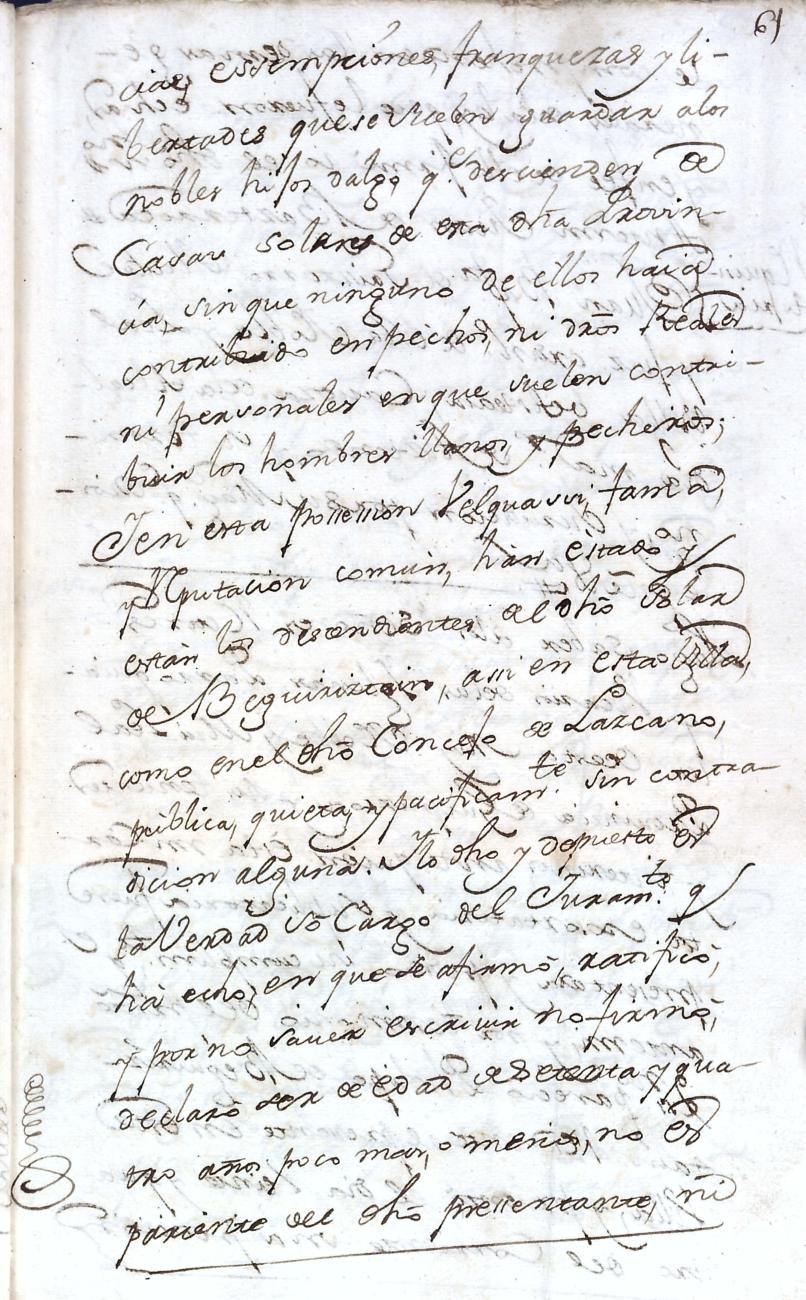 61
cias, essempciones, franquezas y li-
bertades que se suelen guardar a los
nobles hijos dalgo q.e descienden de
Casas solares de esta dha Provin-
cia, sin que ninguno de ellos haia
contribuido en pechos, ni dros Reales
ni personales en que suelen contri-
buir los hombres llanos y pecheros;
I en esta possession Velquasi, fama,
y Reputacion comun, han estado y
están los descendientes de el dho Solar
de Beguiriztain, assi en esta Villa,
como en el dho Concejo de Lazcano,
publica, quieta, y pacificam.te sin contra-
dicion alguna. Ylo dho y depuesto es
la Verdad so Cargo del Juram.to q
ha echo, en que se afirmó, ratificó,
y por no saver escrivir no firmó,
declaró ser de edad de Setenta y qua-
tro años poco mas, o menos, no es
pariente del dho pressentante, ni